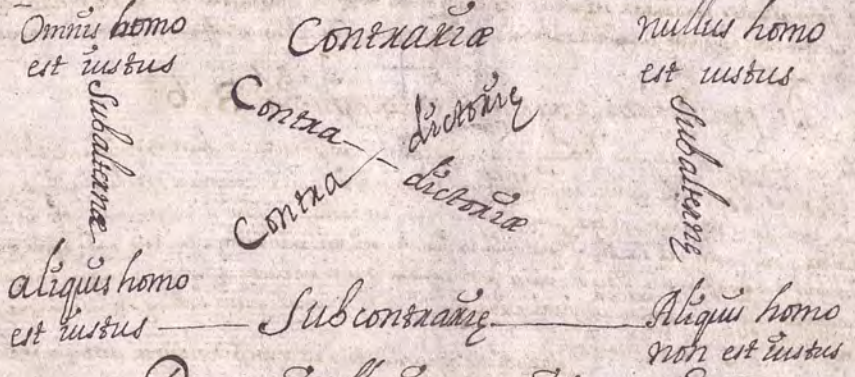 Omnis homo
est iustus
Contrariæ
nullus homo
est iustus
Subalternæ
Contra-
dictoriæ
Contra
dictorię
Subalternę
aliquis homo
est iustus
Subcontrarię
Aliquis homo
non est iustus